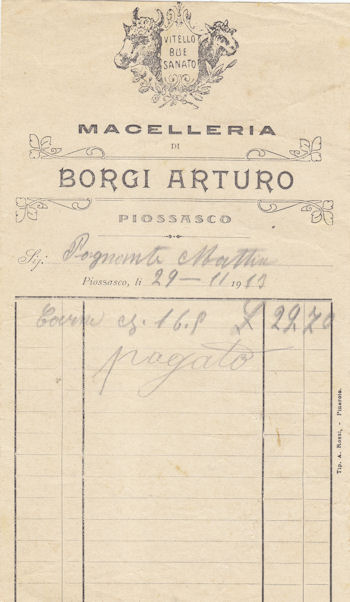 VITELLO
BUE
SANATO
MACELLERIA
DI
BORGI ARTURO
PIOSSASCO
Sig: Pognante Mattia
Piossasco, li 29-11 1913
Carne ch. 16.5 £ 29.70
pagato
Tip. A. Rossi, - Pinerolo.